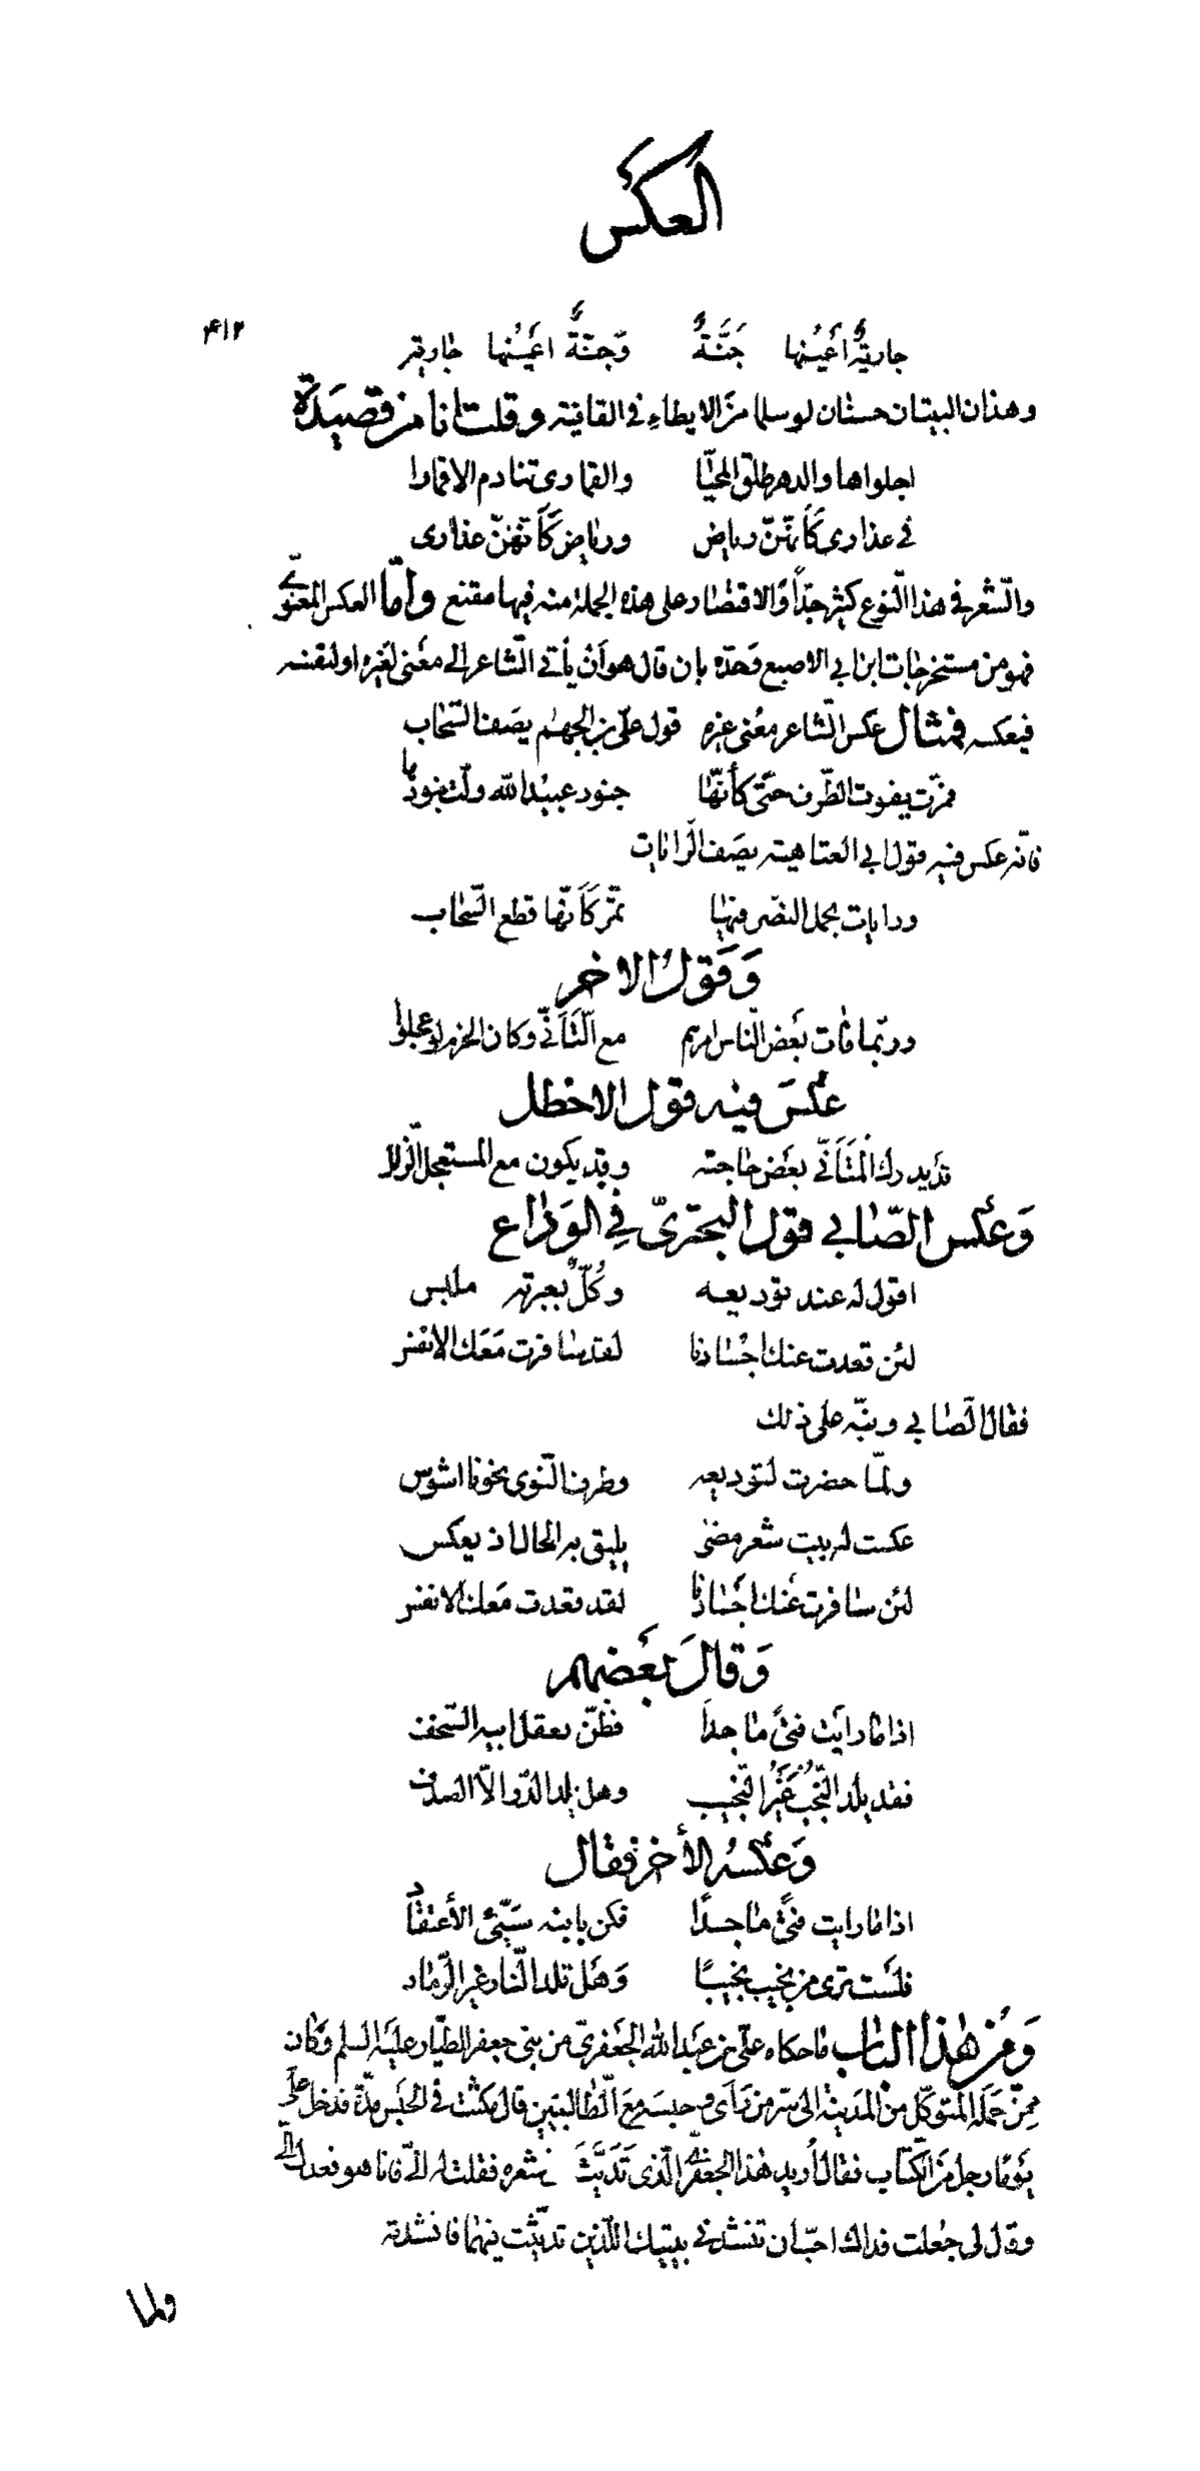 العكس
٤١٢
جارية اعينها جنّة وجنّة اعينها جارية
وهذان البيتان حسنان لو سلما من الايطاء في القافية وقلت انا من قصيدة
اجلواها والدهر طلق المحيّا والقمارى تنادم الاقمارا
في عذارى كأنّهنّ رياض ورياض كأنّهنّ عذارى
والشّعر في هذا النّوع كثير جدّاً والاقتصار على هذه الجملة منه فيها مقنع وامّا العكس المعنويّ
فهو من مستخرجات ابن ابي الاصبع وحدّه بان قال هو أن يأتي الشّاعر الى معنى لغيره او لنفسه
فيعكسه فمثال عكس الشّاعر معنى غيره قول عليّ بن الجهم يصف السّحاب
فمرّت يفوت الطّرف حتّى كأنّها جنود عبيد الله ولّت بنودها
فانّه عكس فيه قول ابي العتاهية يصف الرّايات
ورايات يحل النصر فيها تمرّ كَأنّها قطع السّحاب
وَقول الاخر
وربّما فات بعض النّاس امرهم مع التّأنّي وكان الحزم لو عجلوا
عكسَ فيه قول الاخطل
قد يدرك المتأنّي بعض حاجته وقد يكون مع المستعجل الزّلل
وَعكس الصّابي قول البحتريّ في الوَداع
اقول له عند توديعه وكُلّ بعبرته ملبس
لئن قعدت عنك اجسادنا لقد سافرت مَعَك الانفس
فقال الصّابي ونبّه على ذلك
ولمّا حضرت لتوديعه وطرف النّوى نحونا اشوس
عكست له بيت شعر مضى يليق به الحال اذ يعكس
لئن سافرت عنك اجسادنا لقد قعدت مَعك الانفس
وَقالَ بعَضهم
اذا ما رايت فتىً ماجداَ فظنّ بعقل ابيه السّخف
فقد يلد النّجبُ غيرُ النّجيب وهل يلد الدّرّ الّا الصدف
وَعكسُه الأخر فقال
اذا ما رايت فتىً ماجداً فكن بابنه سَيّئ الأعتقاد
فلَست ترى من نجيب نجيباً وهَل تلد النّار غير الرّماد
وَمن هذا الباب ما حكاه عليّ بن عبد الله الجَعفريّ من بني جعفر الطيّار عليه السلم وكان
ممّن حَمَله المتوكّل من المدينة الى سرّ من رَأى وحبسَه مَع الطّالبيين قال مكثت في الحبَس مدّة فدخل علىّ
يَومًا رجل من الكّتاب فقال أريد هذا الجعفريّ الّذي تَدَيّثَ في شعره فقلت له الىّ فانا هو فعدل الىّ
وقال لى جُعلت فداك احبّ أن تنشدني بيتيك اللّذين تديّثت فيهما فانشدته
ولما